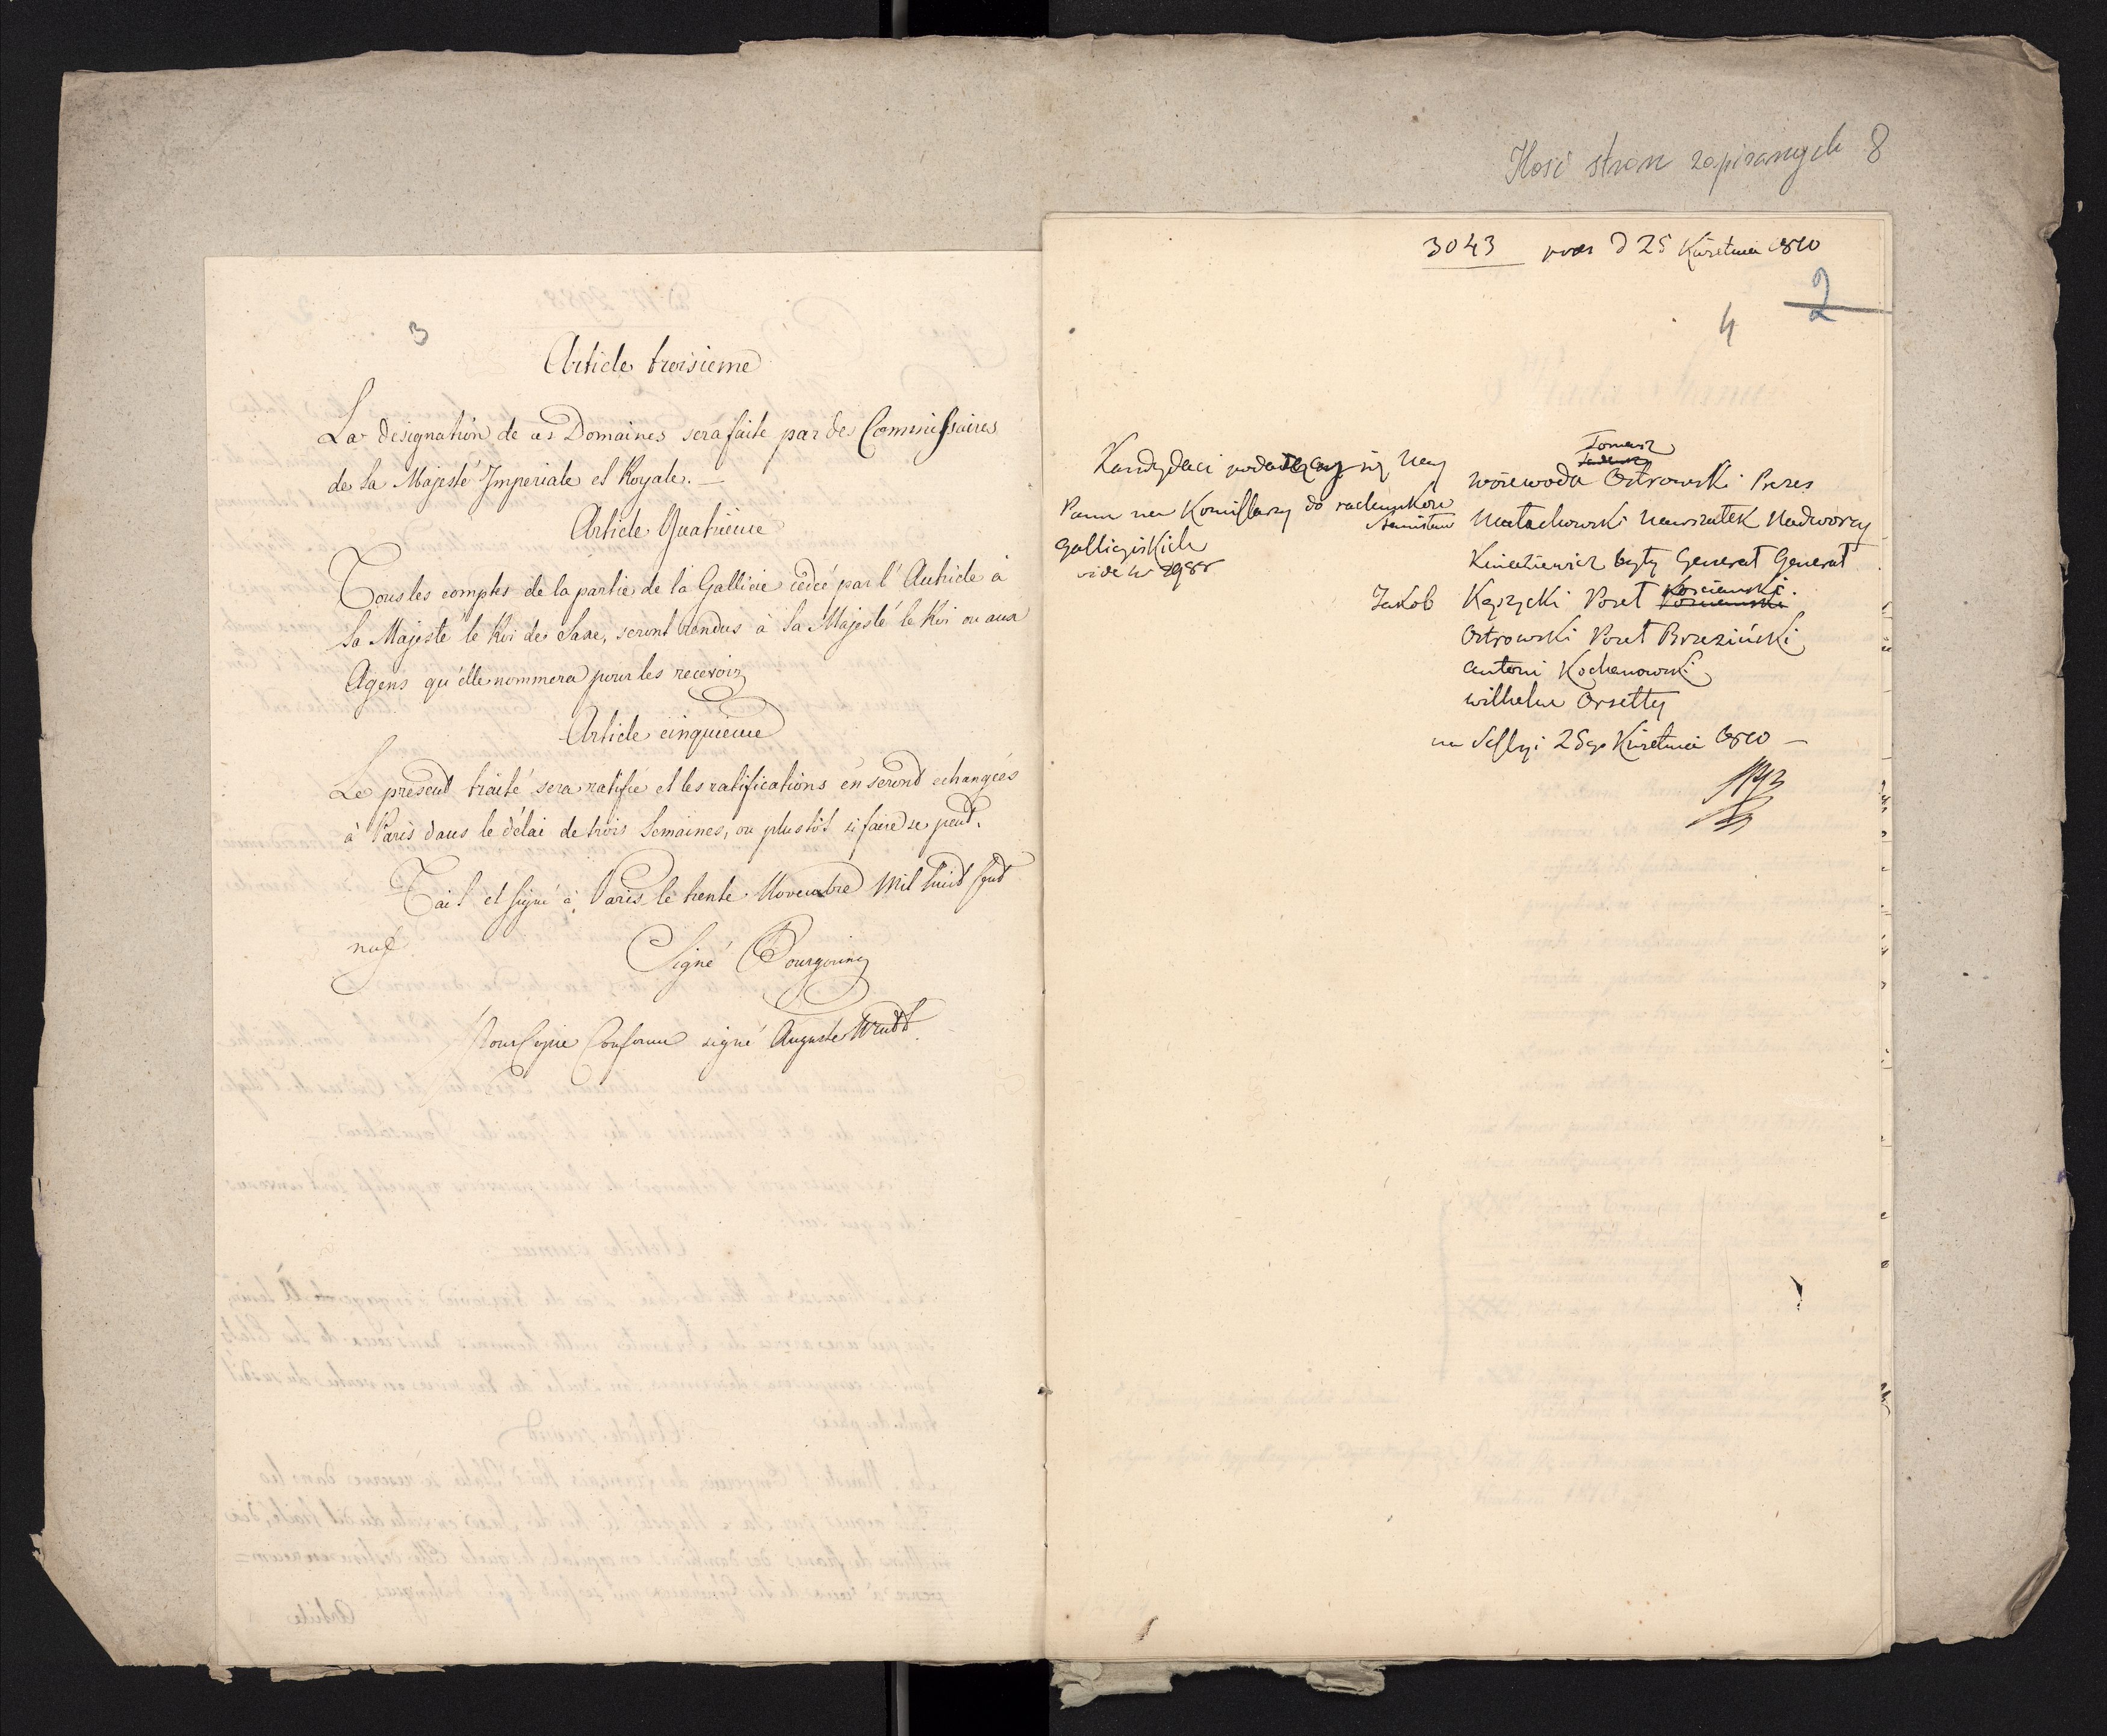 Ilość stron zapisanych 8
3
Article troisieme
La designation de ces Domaines sera faite par des Commissaires
de Sa Majesté Imperiale et Royale. —
Article Quatrieme
Tous les comptes de la partie de la Gallicie cedée par l'Autriche à
Sa Majesté le Roi de Saxe, seront rendus à Sa Majesté le Roi ou aux
Agens qu'elle nommera pour les recevoir
Article cinquieme
Le présent traité sera ratifié et les ratifications en seront echangées
à Paris dans le délai de trois Semaines, ou plustôt si faire se peut.
Fait et signé à Paris le trente Novembre Mil huit Cent
neuf
Signé Bourgoing
Pour Copie Conforme signé Auguste
3043 d 25 Kwietnia 1810
2
4
Kandydaci podani Nay
Panu na Komissarzy do rachunkow
Galliciyskich
vide Nr 2988
Tomasz
Woiewoda Ostrowski Prezes
Stanisław Małachowski Marszałek Nadworny
Kniaziewicz były Generał Generał
Jakob Kęszycki Poseł Kościański
Ostrowski Poseł Brzeziński
Antoni Kochanowski
Wilhelm Orsetty
na Sessyi 25go Kwietnia 1810 —